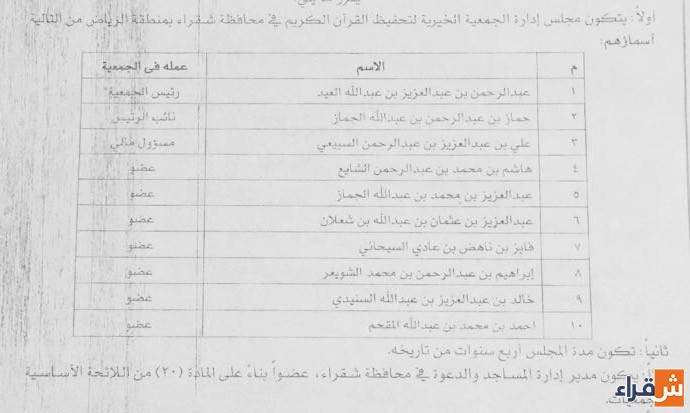 أولاً: يتكون مجلس إدارة الجمعية الخيرية لتحفيظ القرآن الكريم في محافظة شقراء بمنطقة الرياض من التالية
أسماؤهم:
م الاسم عمله في الجمعية
١ عبدالرحمن بن عبدالعزيز بن عبدالله العيد رئيس الجمعية
٢ حماز بن عبدالرحمن بن عبدالله الجماز نائب الرئيس
٣ علي بن عبدالعزيز بن عبدالرحمن السبيعي مسؤول مالي
٤ هاشم بن محمد بن عبدالرحمن الشايع عضو
٥ عبدالعزيز بن محمد بن عبدالله الجماز عضو
٦ عبدالعزيز بن عثمان بن عبدالله بن شعلان عضو
٧ فايز بن ناهض بن عادي السيحاني عضو
٨ إبراهيم بن عبدالرحمن بن محمد الشويعر عضو
٩ خالد بن عبدالعزيز بن عبدالله السنيدي عضو
١٠ احمد بن محمد بن عبدالله المقحم عضو
ثانياً: تكون مدة المجلس أربع سنوات من تاريخه.
يكون مدير إدارة المساجد والدعوة في محافظة شقراء، عضواً بناءً على المادة (٢٠) من اللائحة الأساسية
شقراء